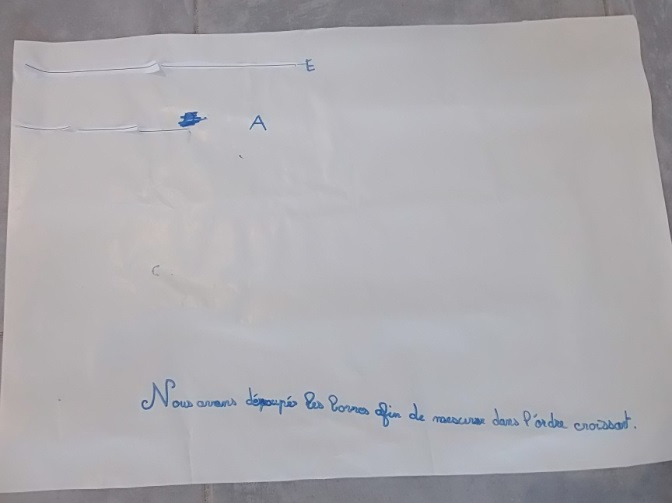 E
A
C
Nous avons découpés les bornes afin de mesurer dans l'ordre croissant.